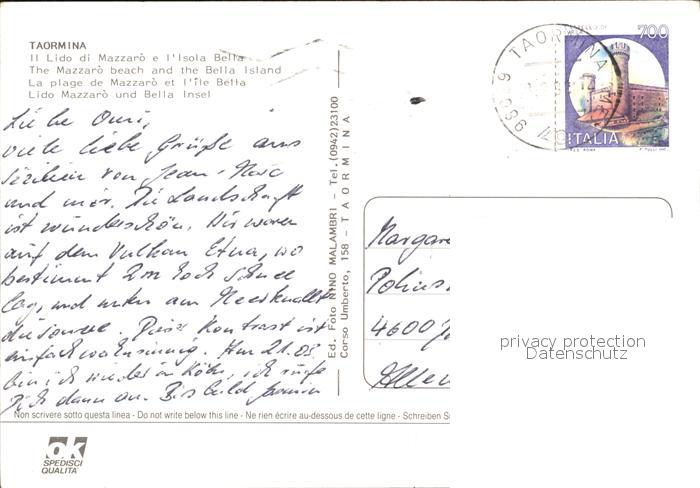 TAORMINA
Il Lido di Mazzarò e l'Isola Bella
The Mazzarò beach and the Bella Island
La plage de Mazzarò et l'Île Bella
Lido Mazzarò und Bella Insel
Liebe Omi,
viele liebe Grüße aus
Sizilien von Jean-Marc
und mir. Die Landschaft
ist wunderschön. Wir waren
auf dem Vulkan Etna, wo
bestimmt 2m hoch Schnee
lag, und unten am Meer knallt
die Sonne. Dieser Kontrast ist
einfach wahnsinnig. Am 21.03.
bin ich wieder in Köln, ich rufe
Dich dann an. Bis bald
Non scrivere sotto questa linea - Do not write below this line - Ne rien écrire au-dessous de cette ligne - Schreiben S
ok
SPEDISCI
QUALITA'
Ed. Foto NINO MALAMBRI - Tel.(0942)23100
Corso Umberto, 158 - TAORMINA
TAORMINA (ME)
98039
700
ITALIA
Margare
4600
privacy protection
Datenschutz